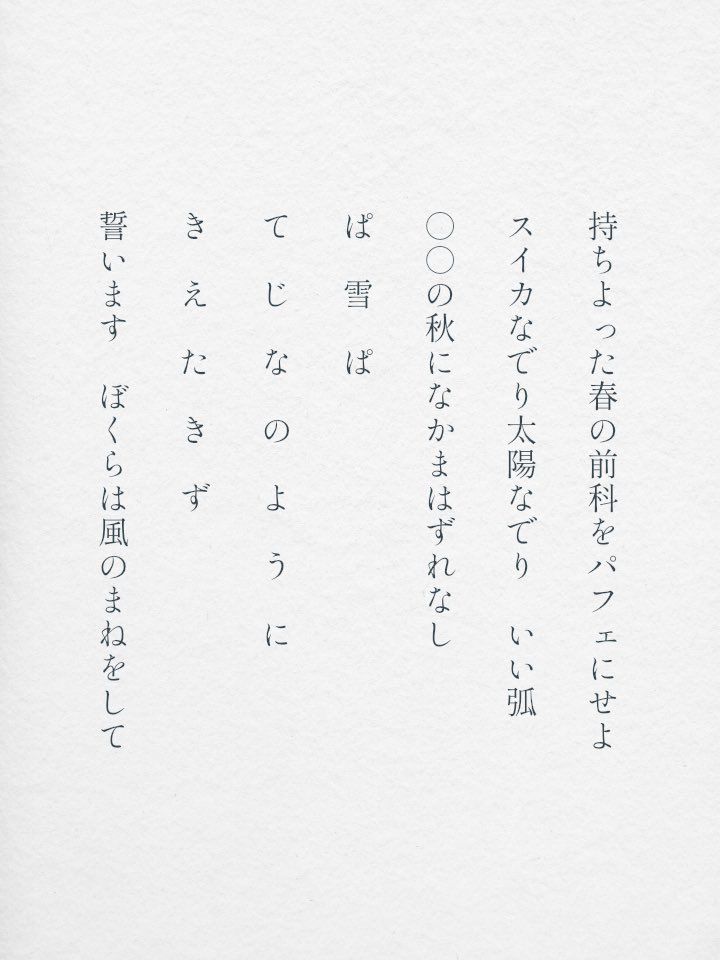 持ちよった春の前科をパフェにせよ
スイカなでり太陽なでり　いい弧
〇〇の秋になかまはずれなし
ぱ　雪　ぱ
て　じ　な　の　よ　う　に
き　え　た　き　ず
誓います　ぼくらは風のまねをして